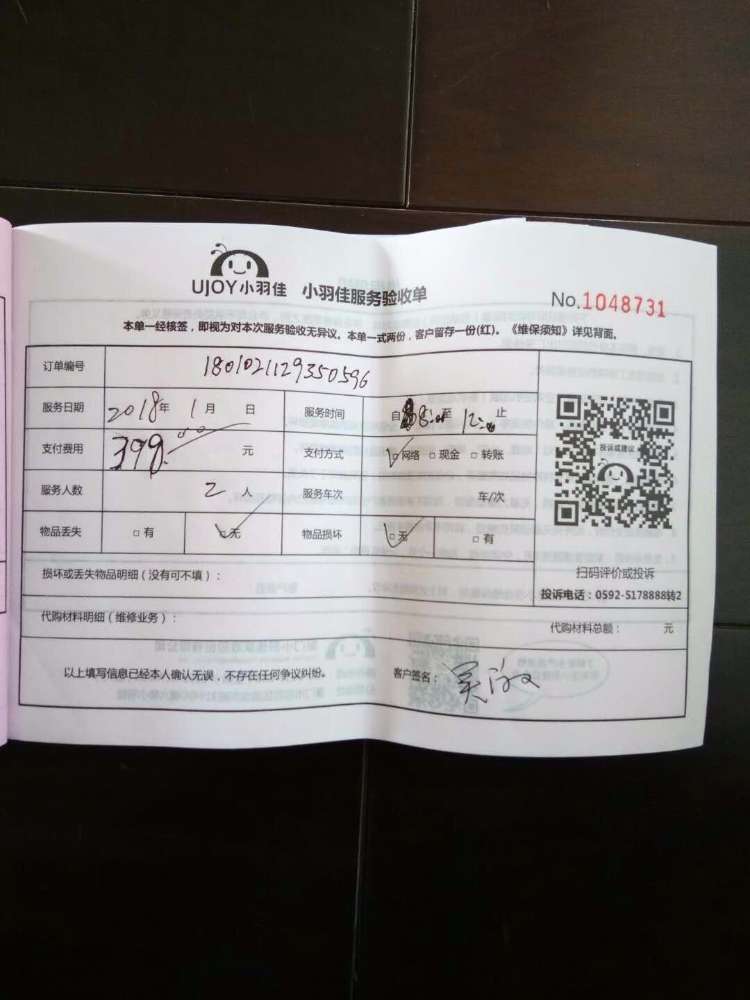 UJOY小羽佳 小羽佳服务验收单 No.1048731
本单一经核签，即视为对本次服务验收无异议。本单一式两份，客户留存一份(红)。《维保须知》详见背面。
订单编号 1801021129350596
服务日期 2018年 1月 日 服务时间 自 8:00 至 12:00 止
支付费用 398.00 元 支付方式 网络 现金 转账
服务人数 2 人 服务车次 车/次
物品丢失 有 无 物品损坏 无 有
投诉或建议
扫码评价或投诉
投诉电话：0592-5178888转2
损坏或丢失物品明细（没有可不填）：
代购材料明细（维修业务）：
代购材料总额： 元
以上填写信息已经本人确认无误，不存在任何争议纠纷。 客户签名： 吴